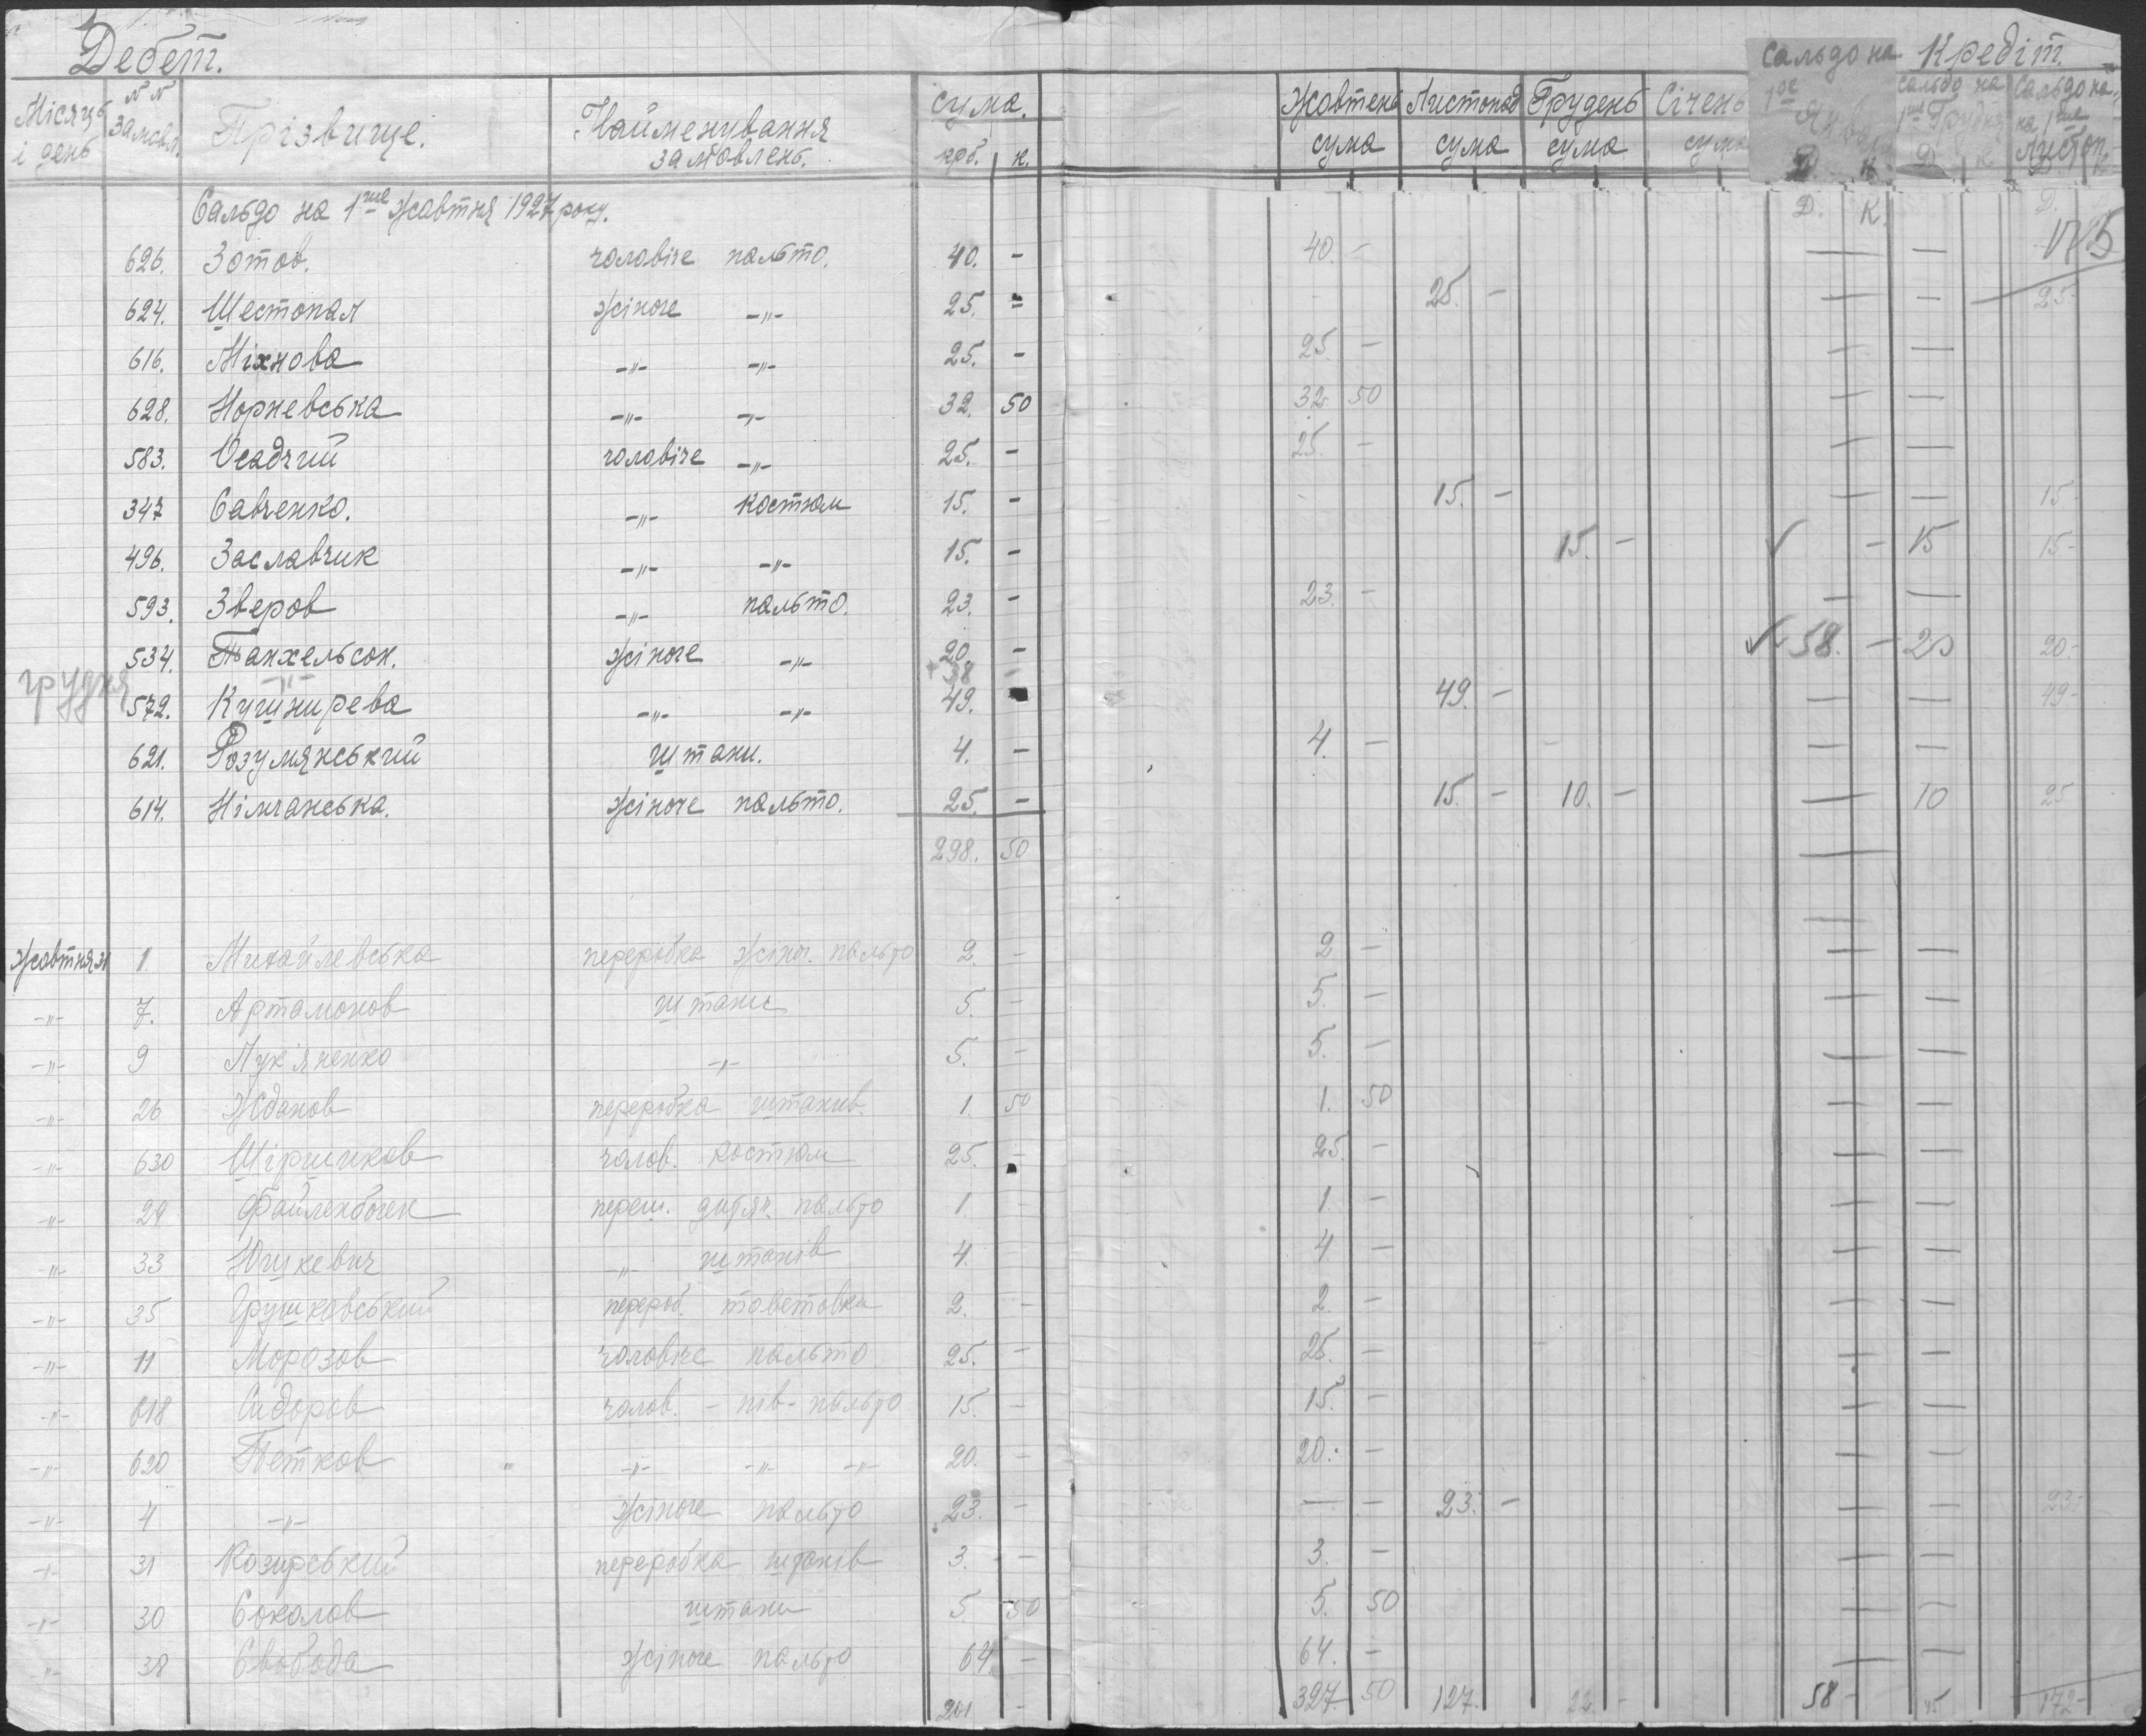 Дебет.
Кредіт.
Місяць і день
№№ замовл.
Прізвище.
Найменування замовлень.
сума. крб. к.
Жовтень сума
Листопад сума
Грудень сума
Січень сума
Сальдо на 1ое Янва Д К
Сальдо на 1ше Грудня Д К
Сальдо на на 1ше Листоп.
Сальдо на 1ше жовтня 1927 року. Д. К. Д.
626. Зотов. чоловіче пальто. 40. - 40. - — —
624. Шестопал жіноче -"- 25. - 25. - — — 25-
616. Міхнова -"- -"- 25. - 25 - — —
628. Норневська -"- -"- 32. 50 32. 50 — —
583. Осадчий чоловіче -"- 25. - 25. - — —
347 Савченко. -"- костюм 15. - - 15. - — — 15-
496. Заславчик -"- -"- 15. - 15. - ✓ - 15 15-
593. Зверов -"- пальто. 23. - 23. - — —
534. Танхельсон. жіноче -"- 20. - ✓ 58. - 20 20-
грудня -"- + 38 -
572. Кушнирева -"- -"- 49. 49. - — — 49-
621. Розумянський штани. 4. - 4. - - — —
614. Німчанська. жіноче пальто. 25. - 15. - 10. - — 10 25
298. 50 —
Жовтня 31 1. Михайлевська переробка жіноч. пальто 2. - 2 - — —
-"- 7. Артамонов штани 5. - 5. - — —
-"- 9 Лук'яненко -"- 5. - 5. - — —
-"- 26 Жданов переробка штанів 1. 50 1. 50 — —
-"- 630 Ширшиков чолов. костюм 25. - 25. - — —
-"- 29 Файленбоген переш. дитяч. пальто 1 1. - — —
-"- 33 Юшкевич -"- штанів 4 4. - — —
-"- 35 Грушковський перероб. товстовки 2. - 2. - — —
-"- 11 Морозов чоловіче пальто 25. - 25. - — —
-"- 618 Сидоров чолов. - пів-пальто 15. - 15. - — —
-"- 620 Петков -"- -"- -"- 20. - 20. - — —
-"- 4 -"- жіноче пальто 23. - — - 23. - — — 23-
-"- 31 Козирський переробка штанів 3. - 3. - — —
-"- 30 Соколов штани 5. 50 5. 50 — —
-"- 38 Свобода жіноче пальто 64. - 64. - — —
201 - 327. 50 127. - 58 - 45 172-